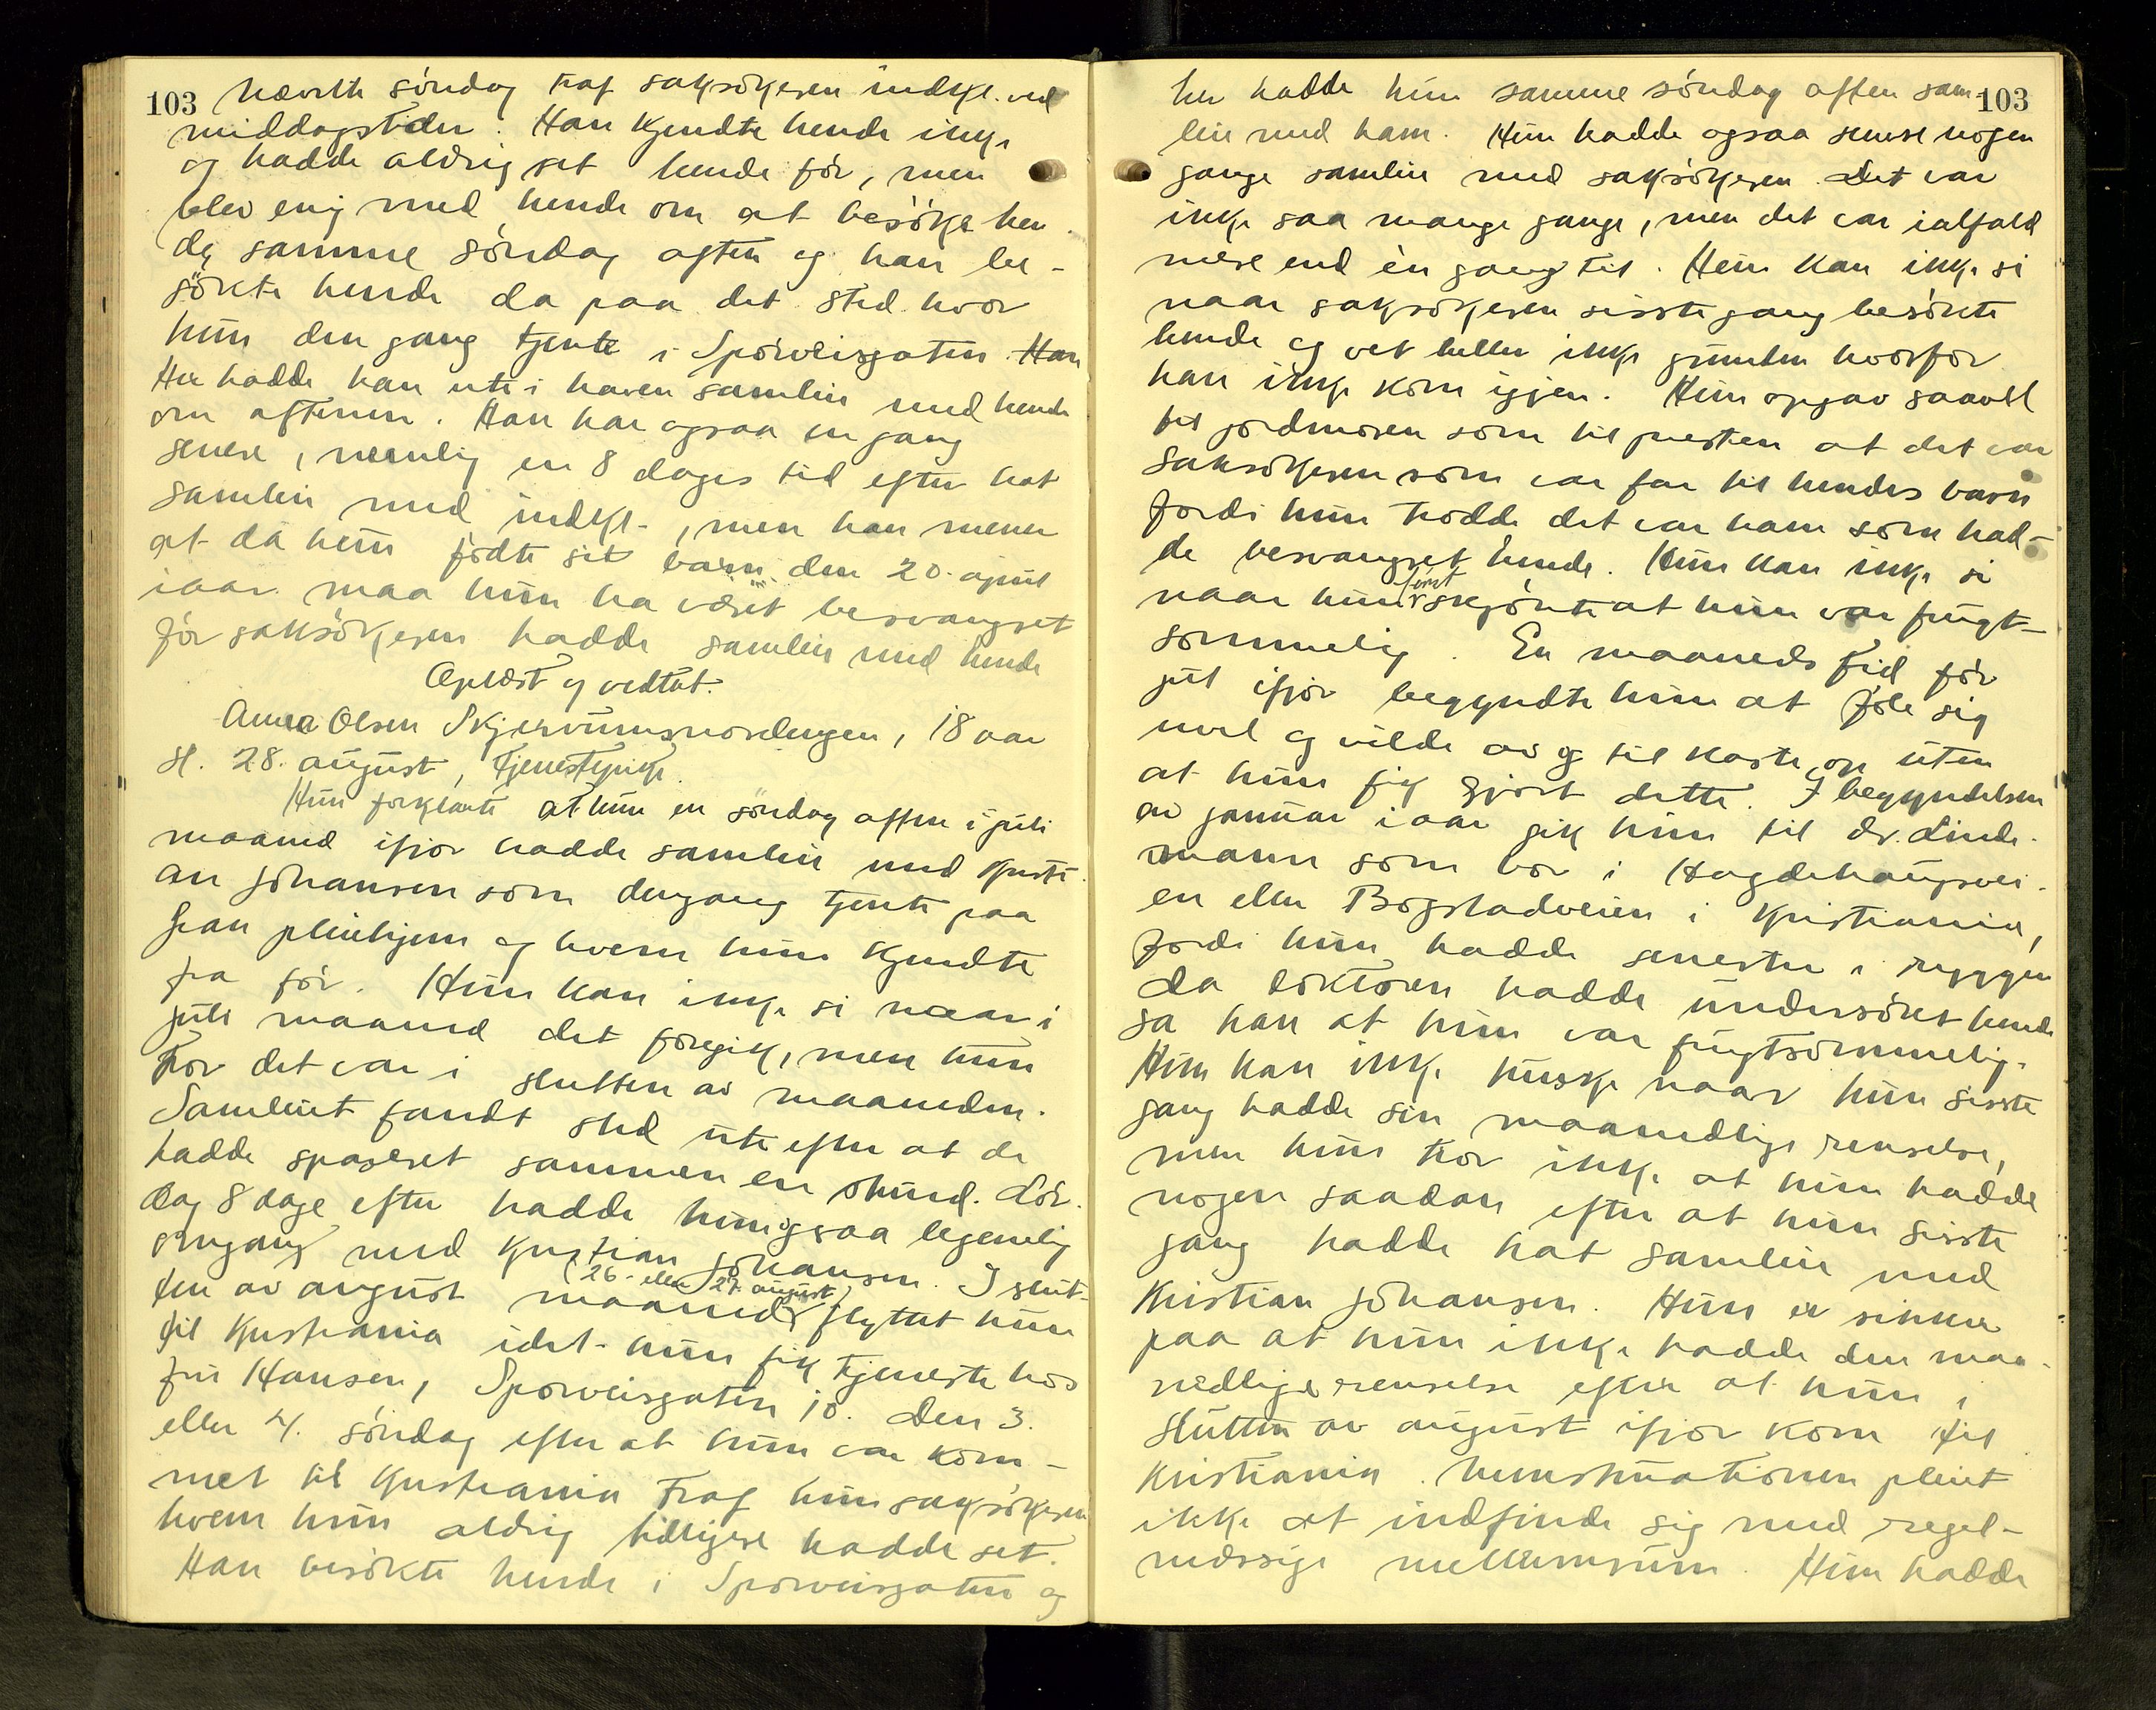 103
nævnte söndag traf saksökeren indkl. ved
middagstider. Han kjendte hende ikke
og hadde aldrig set hende för, men
blev enig med hende om at besöke hen-
de samme söndag aften og han be-
sökte hende da paa det sted hvor
hun den gang tjente i Sporveisgaten. Han
Her hadde han ute i haven samleie med hende
om aftenen. Han har ogsaa en gang
senere, nemlig en 8 dages tid efter hat
samleie med indkl., men han mener
at da hun födte sit barn den 20. april
iaar maa hun ha været besvangret
för saksökeren hadde samleie med hende
Oplæst og vedtat.
Anna Olsen Skjervumsnordengen, 18 aar
sl. 28. august, tjenestepike.
Hun forklarte at hun en söndag aften i juli
maaned ifjor hadde samleie med Kristi-
an Johansen som dengang tjente paa
Gran pleiehjem og hvem hun kjendte
fra för. Hun kan ikke si naar i
juli maaned det foregik, men hun
tror det var i slutten av maaneden.
Samleiet fandt sted ute efter at de
hadde spaseret sammen en stund. Lör-
dag 8 dage efter hadde hun ogsaa legemlig
omgang med Kristian Johansen. I slut-
(26. eller 27. august)
ten av august maaned flyttet hun
til Kristiania idet hun fik tjeneste hos
fru Hansen, Sporveisgaten 10. Den 3.
eller 4. söndag efter at hun var kom-
met til Kristiania traf hun saksökeren
hvem hun aldrig tidligere hadde set.
Han besökte hende i Sporveisgaten og
103
her hadde hun samme söndag aften sam-
leie med ham. Hun hadde ogsaa senere nogen
gange samleie med saksökeren. Det var
ikke saa mange gange, men det var ialfald
mere end èn gang til. Hun kan ikke si
naar saksökeren sisste gang besökte
hende og vet heller ikke grunden hvorfor
han ikke kom igjen. Hun opgav saavel
til jordmoren som til presten at det var
saksökeren som var far til hendes barn
fordi hun trodde det var ham som had-
de besvangret hende. Hun kan ikke si
först
naar hun skjönte at hun var frugt-
sommelig. En maaneds tid för
jul ifjor begyndte hun at föle sig
uvel og vilde av og til kaste op uten
at hun fik gjort dette. I begyndelsen
av januar iaar gik hun til dr. Linde-
mann som bor i Hægdehaugsvei-
en eller Bogstadveien i Kristiania,
fordi hun hadde smerter i ryggen
Da doktoren hadde undersökt hende
sa han at hun var frugtsommelig.
Hun kan ikke huske naar hun sisste
gang hadde sin maanedlige renselse,
men hun tror ikke at hun hadde
nogen saadan efter at hun sisste
gang hadde hat samleie med
Kristian Johansen. Hun er sikker
paa at hun ikke hadde den maa-
nedlige renselse efter at hun i
slutten av august ifjor kom til
Kristiania. Menstruationen pleiet
ikke at indfinde sig med regel-
mæssige mellemrum. Hun hadde